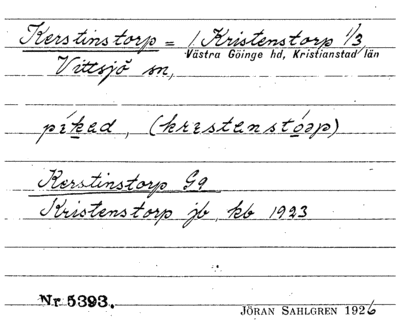 Kerstinstorp = 1 Kristenstorp 1/3
Västra Göinge hd, Kristianstad län
Vittsjö sn,
píkad, (krıstanstóəp)
Kerstinstorp Gg
Kristenstorp jb, kb 1923
Nr 5393.
JÖRAN SAHLGREN 1926